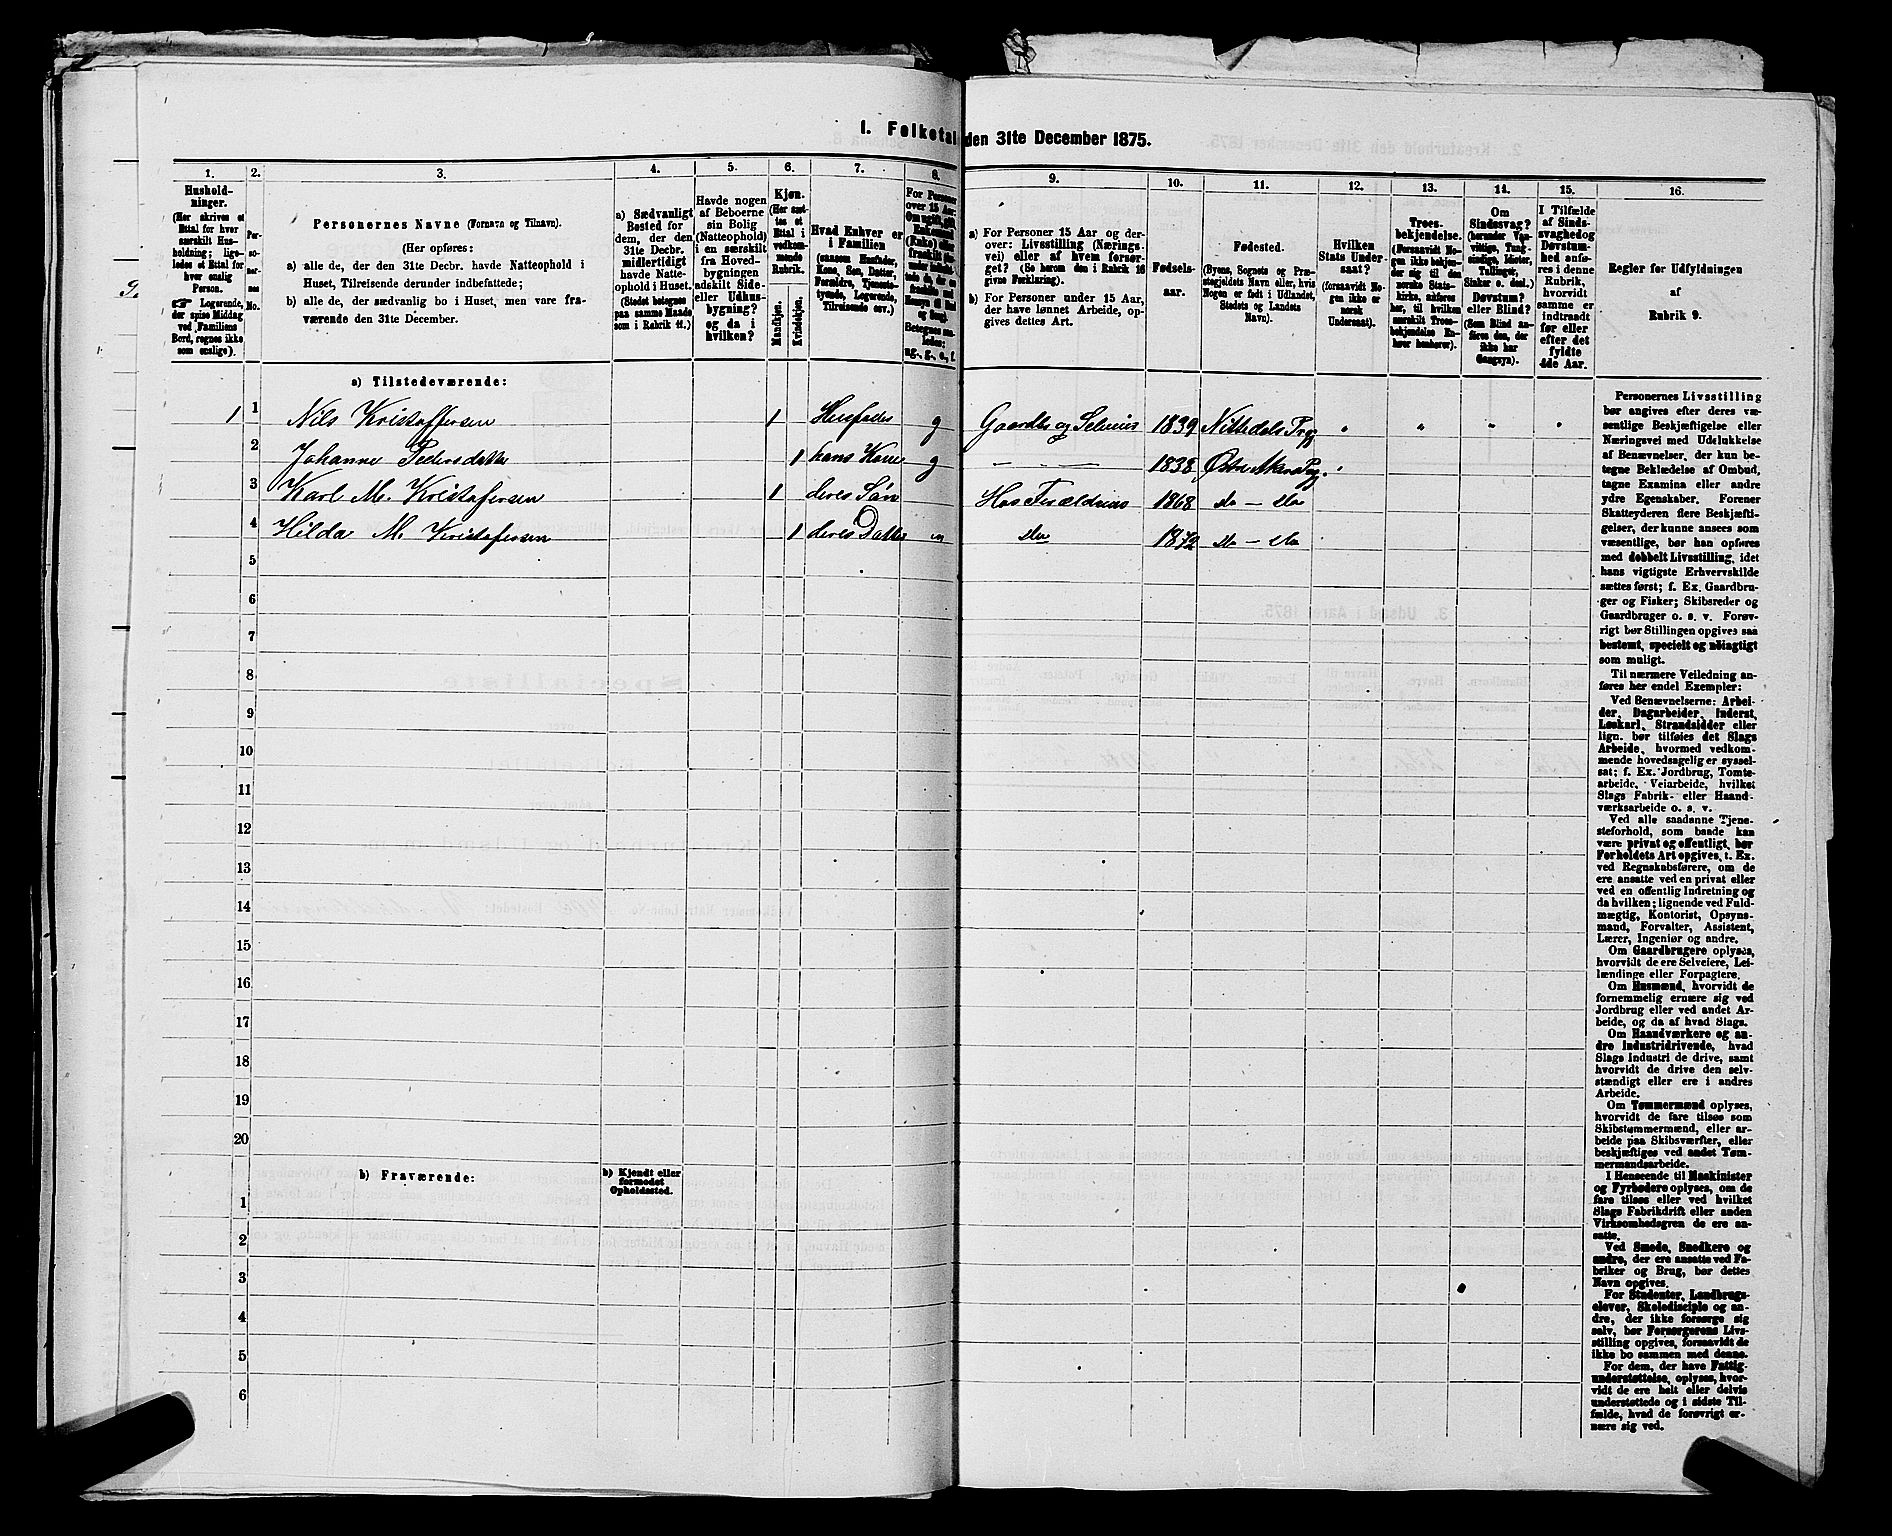 I. Folketal den 31te December 1875.
1. 2. 3. 4. 5. 6. 7. 8. 9. 10. 11. 12. 13. 14. 15. 16.
Hushold-
ninger.
(Her skrives et
Ettal for hver
særskilt Hus-
holdning; lige-
ledes et Ettal for
hver enslig
Person.
☞ Logerende,
der spise Middag
ved Familiens
Bord, regnes ikke
som enslige).
Per-
so-
ner-
nes
No.
Personernes Navne (Fornavn og Tilnavn).
(Her opføres:
a) alle de, der den 31te Decbr. havde Natteophold i
Huset, Tilreisende derunder indbefattede;
b) alle de, der sædvanlig bo i Huset, men vare fra-
værende den 31te December.
a) Sædvanligt
Bosted for
dem, der den
31te Decbr.
midlertidigt
havde Natte-
ophold i Huset.
(Stedet betegnes
paa samme Maade
som i Rubrik 11.)
Havde nogen
af Beboerne
sin Bolig
(Natteophold)
i en særskilt
fra Hoved-
bygningen
adskilt Side-
eller Udhus-
bygning?
og da i
hvilken?
Kjøn.
(Her sæt-
tes et
Ettal i
vedkom-
mende
Rubrik.
Mandkjøn.
Kvindekjøn.
Hvad Enhver er
i Familien
(saasom Husfader,
Kone, Søn, Datter,
Forældre, Tjeneste-
tyende, Logerende,
Tilreisende osv.)
For Personer
over 15 Aar:
Om ugift, gift,
Enkemand
(Enke) eller
fraskilt
Betegnes saa-
ledes:
ug., g., e., f.
a) For Personer 15 Aar og der-
over: Livsstilling (Nærings-
vei) eller af hvem forsør-
get? (Se herom den i Rubrik 16
givne Forklaring).
b) For Personer under 15 Aar,
der have lønnet Arbeide, op-
gives dettes Art.
Fødsels-
aar.
Fødested.
(Byens, Sognets og Præ-
stegjeldets Navn eller, hvis
Nogen er født i Udlandet,
Stedets og Landets
Navn).
Hvilken
Stats Under-
saat?
(forsaavidt No-
gen ikke er
norsk
Undersaat).
Troes-
bekjendelse.
(Forsaavidt No-
gen ikke bekjen-
der sig til den
norske Stats-
kirke, anføres
her, til hvilken
særskilt Troes-
bekjendelse En-
hver henhører).
Om
Sindssvag?
(herunder Van-
vittige, Tung-
sindige, Idioter,
Tullinger,
Sinker o. desl.)
Døvstum?
eller Blind?
(Som Blind an-
føres den, der
ikke har
Gangsyn).
I Tilfælde
af Sinds-
svaghed og
Døvstum-
hed anfø-
res i denne
Rubrik,
hvorvidt
samme er
indtraadt
før eller
efter det
fyldte
4de Aar.
Regler for Udfyldningen
af
Rubrik 9.
a) Tilstedeværende:
1 1 Nils Kristoffersen 1 Husfader g Gaardbr og Selveier 1839 Nittedals Prg
2 Johanne Pedersdatter 1 hans Kone g — — — 1838 Østre Akers Prg.
3 Karl M. Kristofersen 1 deres Søn Hos Forældrene 1868 do – do
4 Hilda M. Kristofersen 1 deres Datter do 1872 do – do
5
6
7
8
9
10
11
12
13
14
15
16
17
18
19
20
b) Fraværende: b) Kjendt eller
formodet
Opholdssted.
1
2
3
4
5
6
Personernes Livsstilling
bør angives efter deres væ-
sentlige Beskjæftigelse eller
Næringsvei med Udelukkelse
af Benævnelser, der kun be-
tegne Beklædelse af Ombud,
tagne Examina eller andre
ydre Egenskaber. Forener
Skatteyderen flere Beskjæfti-
gelser, der kunne ansees som
væsentlige, bør han opføres
med dobbelt Livsstilling, idet
hans vigtigste Erhvervskilde
sættes først; f. Ex. Gaardbru-
ger og Fisker; Skibsreder og
Gaardbruger o. s. v. Forøv-
rigt bør Stillingen opgives saa
bestemt, specielt og nøiagtigt
som muligt.
Til nærmere Veiledning an-
føres her endel Exempler:
Ved Benævnelserne: Arbei-
der, Dagarbeider, Inderst,
Løskarl, Strandsidder eller
lign. bør tilføies det Slags
Arbeide, hvormed vedkom-
mende hovedsagelig er syssel-
sat; f. Ex. Jordbrug, Tomte-
arbeide, Veiarbeide, hvilket
Slags Fabrik- eller Haand-
værksarbeide o. s. v.
Ved alle saadanne Tjene-
steforhold, som baade kan
være privat og offentligt, bør
Forholdets Art opgives, t. Ex.
ved Regnskabsførere, om de
ere ansatte ved en privat eller
ved en offentlig Indretning og
da hvilken; lignende ved Fuld-
mægtig, Kontorist, Opsyns-
mand, Forvalter, Assistent,
Lærer, Ingeniør og andre.
Om Gaardbrugere oplyses,
hvorvidt de ere Selveiere, Lei-
lændinge eller Forpagtere.
Om Husmænd, hvorvidt de
fornemmelig ernære sig ved
Jordbrug eller ved andet Ar-
beide, og da af hvad Slags.
Om Haandværkere og an-
dre Industridrivende, hvad
Slags Industri de drive, samt
hvorvidt de drive den selv-
stændigt eller ere i andres
Arbeide.
Om Tømmermænd oplyses,
hvorvidt de fare tilsøs som
Skibstømmermænd, eller ar-
beide paa Skibsværfter, eller
beskjæftiges ved andet Tøm-
mermandsarbeide.
I Henseende til Maskinister
og Fyrbødere oplyses, om de
fare tilsøs eller ved hvilket
Slags Fabrikdrift eller anden
Virksomhedsgren de ere an-
satte.
Ved Smede, Snedkere og
andre, der ere ansatte ved Fa-
briker og Brug, bør dettes
Navn opgives.
For Studenter, Landbrugs-
elever, Skoledisciple og an-
dre, der ikke forsørge sig
selv, bør Forsørgerens Livs-
stilling opgives, forsaavidt de
ikke bo sammen med denne.
For dem, der have Fattig-
understøttelse, oplyses, hvor-
vidt de ere helt eller delvis
understøttede og i sidste Til-
fælde, hvad de forøvrigt er-
nære sig ved.